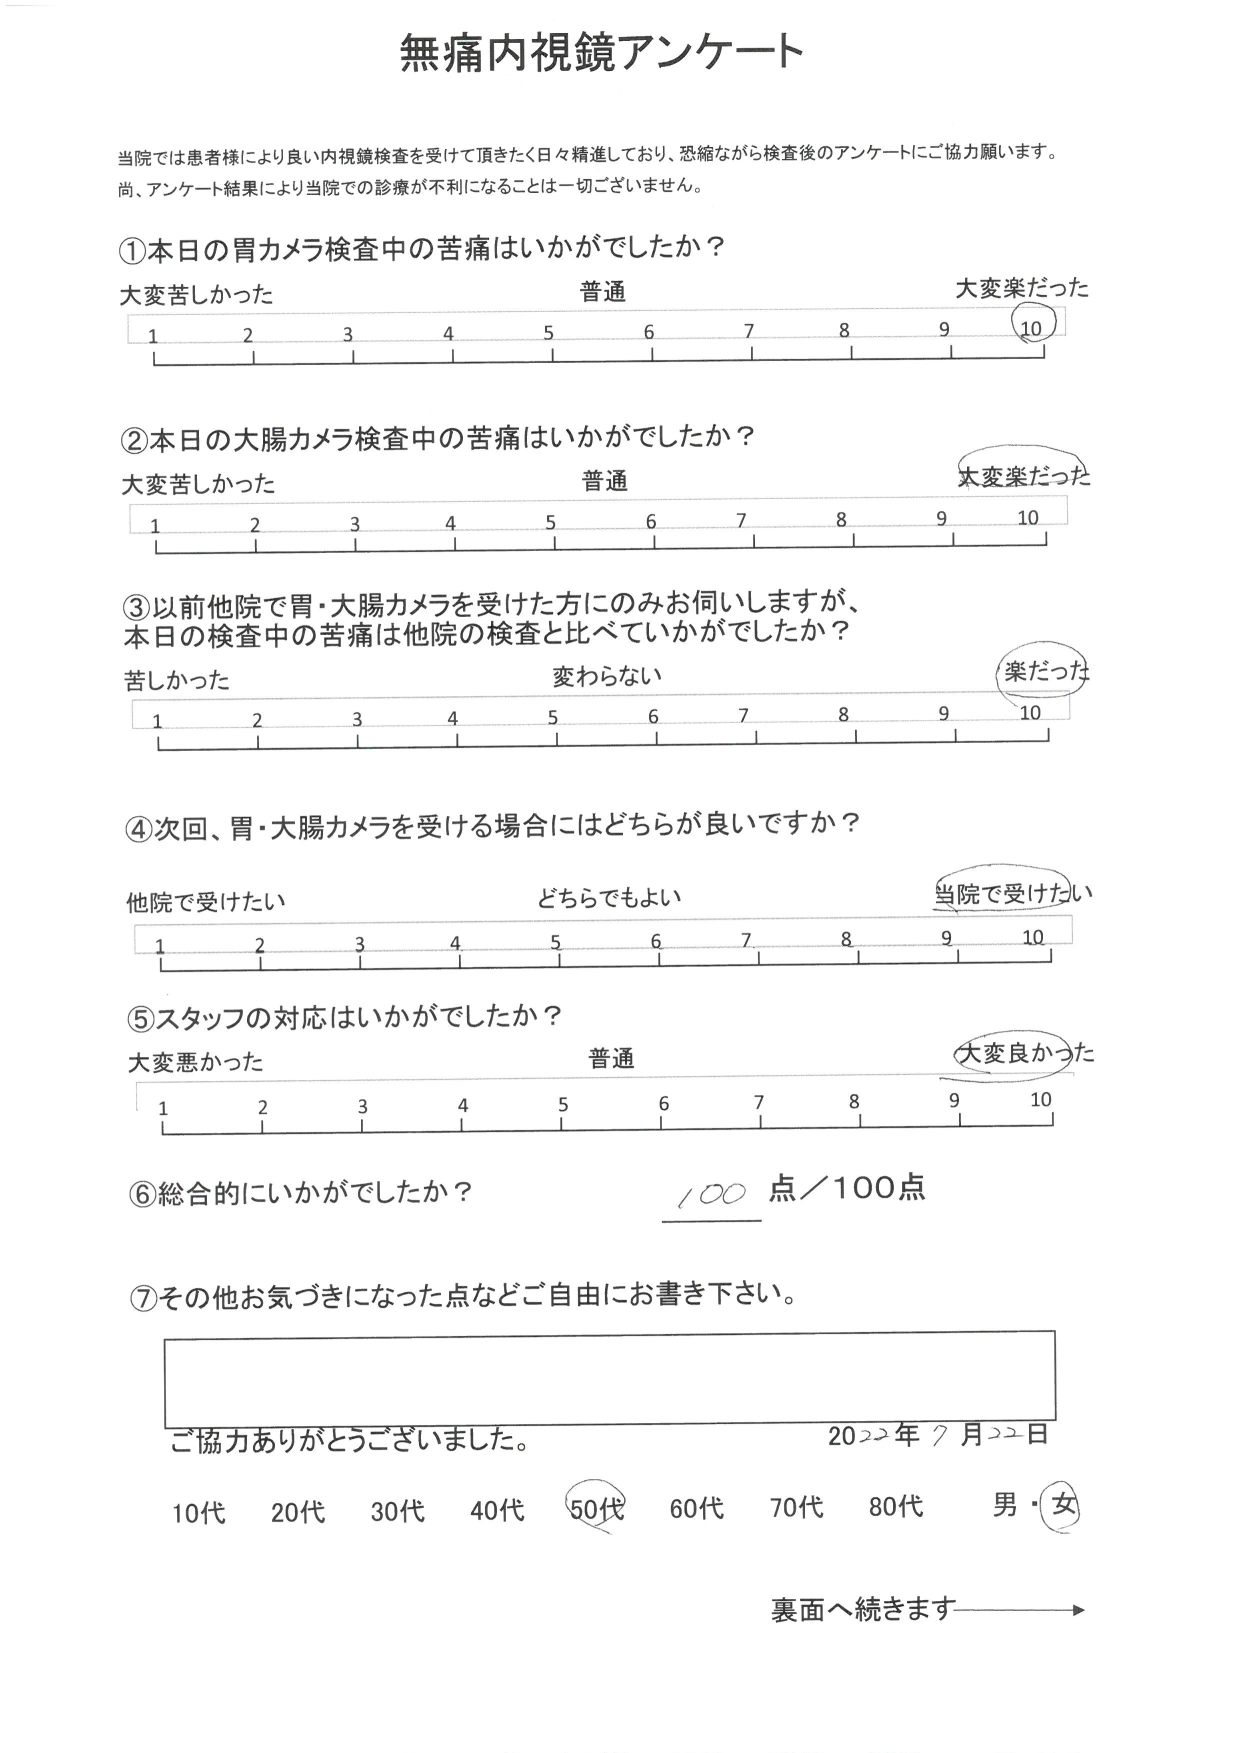 無痛内視鏡アンケート
当院では患者様により良い内視鏡検査を受けて頂きたく日々精進しており、恐縮ながら検査後のアンケートにご協力願います。
尚、アンケート結果により当院での診療が不利になることは一切ございません。
①本日の胃カメラ検査中の苦痛はいかがでしたか？
大変苦しかった 普通 大変楽だった
1 2 3 4 5 6 7 8 9 10
②本日の大腸カメラ検査中の苦痛はいかがでしたか？
大変苦しかった 普通 大変楽だった
1 2 3 4 5 6 7 8 9 10
③以前他院で胃・大腸カメラを受けた方にのみお伺いしますが、
本日の検査中の苦痛は他院の検査と比べていかがでしたか？
苦しかった 変わらない 楽だった
1 2 3 4 5 6 7 8 9 10
④次回、胃・大腸カメラを受ける場合にはどちらが良いですか？
他院で受けたい どちらでもよい 当院で受けたい
1 2 3 4 5 6 7 8 9 10
⑤スタッフの対応はいかがでしたか？
大変悪かった 普通 大変良かった
1 2 3 4 5 6 7 8 9 10
⑥総合的にいかがでしたか？ 100 点／100点
⑦その他お気づきになった点などご自由にお書き下さい。
ご協力ありがとうございました。 2022年 7月22日
10代 20代 30代 40代 50代 60代 70代 80代 男・女
裏面へ続きます